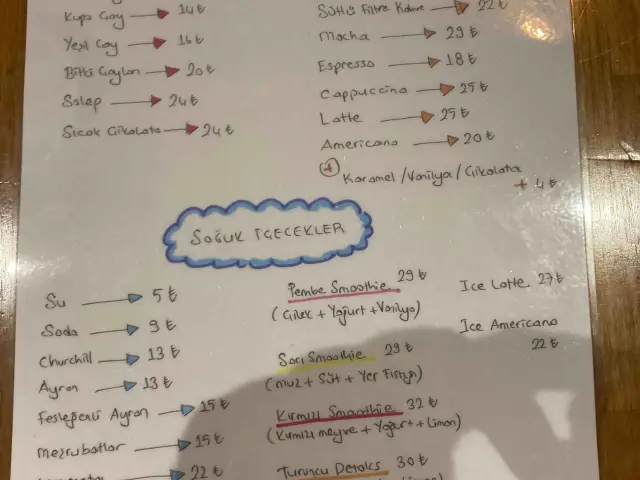 Kupa Çay → 14 ₺
Yeşil Çay → 16 ₺
Bitki Çayları → 20 ₺
Salep → 24 ₺
Sıcak Çikolata → 24 ₺
Sütlü Filtre Kahve → 22 ₺
Mocha → 29 ₺
Espresso → 18 ₺
Cappuccino → 25 ₺
Latte → 25 ₺
Americano → 20 ₺
+ Karamel / Vanilya / Çikolata
+ 4 ₺
SOĞUK İÇECEKLER
Su → 5 ₺
Soda → 9 ₺
Churchill → 13 ₺
Ayran → 13 ₺
Fesleğenli Ayran → 15 ₺
Meşrubatlar → 15 ₺
→ 22 ₺
Pembe Smoothie 29 ₺
(Çilek + Yoğurt + Vanilya)
Sarı Smoothie 29 ₺
(Muz + Süt + Yer Fıstığı)
Kırmızı Smoothie 32 ₺
(Kırmızı meyve + Yoğurt + Limon)
Turuncu Detoks 30 ₺
Ice Latte 27 ₺
Ice Americano
22 ₺